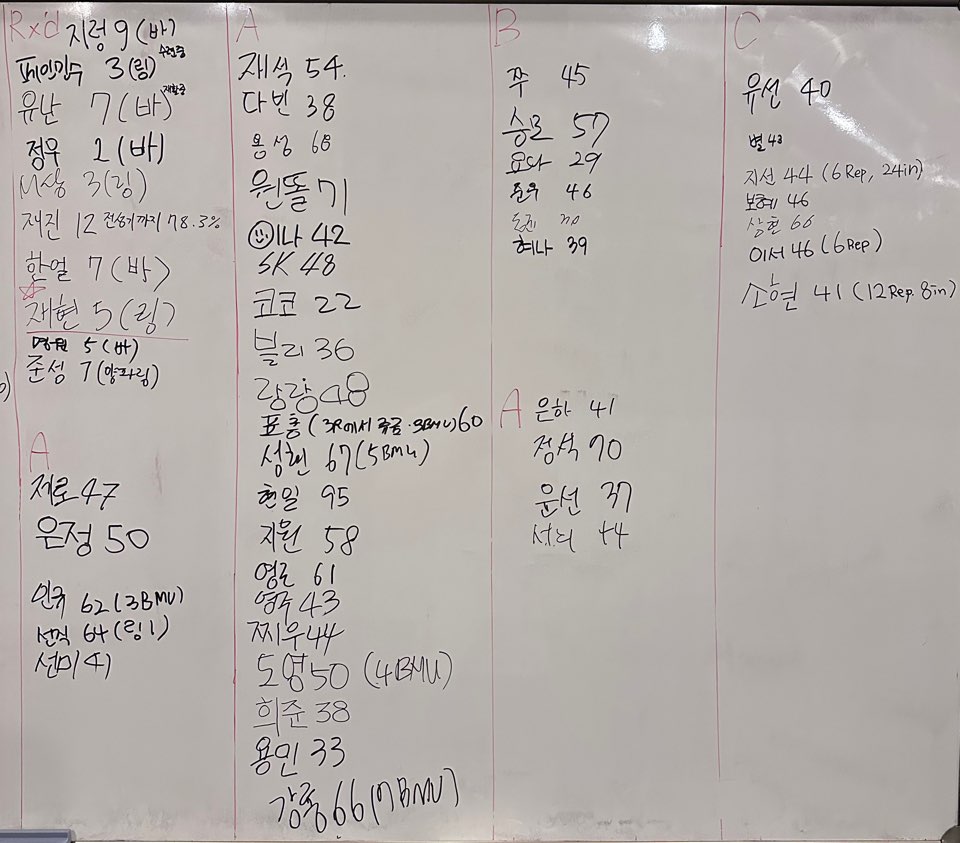 Rx'd 지정 9 (바)
수련중
페인민수 3 (링)
유난 7 (바) 재활중
정우 1 (바)
U상 3 (링)
재진 12 전성기까지 78.3%
한얼 7 (바)
재현 5 (링)
명원 5 (바)
준성 7 (양파링)
A
제로 47
은정 50
인규 62 (3BMU)
선직 64 (링 1)
선미 41
A
재석 54.
다빈 38
용성 68
원똘 71
이나 42
SK 48
코코 22
블리 36
랑랑 48
표흥 (3R에서 죽음. 3BMU) 60
성현 67 (5BMU)
현일 95
지원 58
영준 61
영주 43
찌우 44
도영 50 (4BMU)
희준 38
용민 33
강훈 66 (7BMU)
B
쭈 45
승모 57
요다 29
준우 46
혜나 39
A
은하 41
정석 70
윤선 37
44
C
유선 40
별 43
지선 44 (6 Rep, 24in)
보혜 46
상현 66
이서 46 (6 Rep)
소현 41 (12 Rep. 8in)